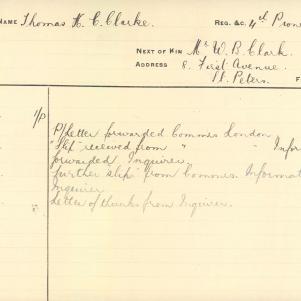 NAME Thomas H. C. Clarke. REG. &C. 4th Pion
NEXT OF KIN Mr W. B. Clark.
ADDRESS 8. First Avenue
St. Peters. F
1/p P/Letter forwarded Commis London
"Slip" received from " " Infor
forwarded Inquirer.
further slip from Commis. Informat
Inquirer
Letter of thanks from Inquirer.